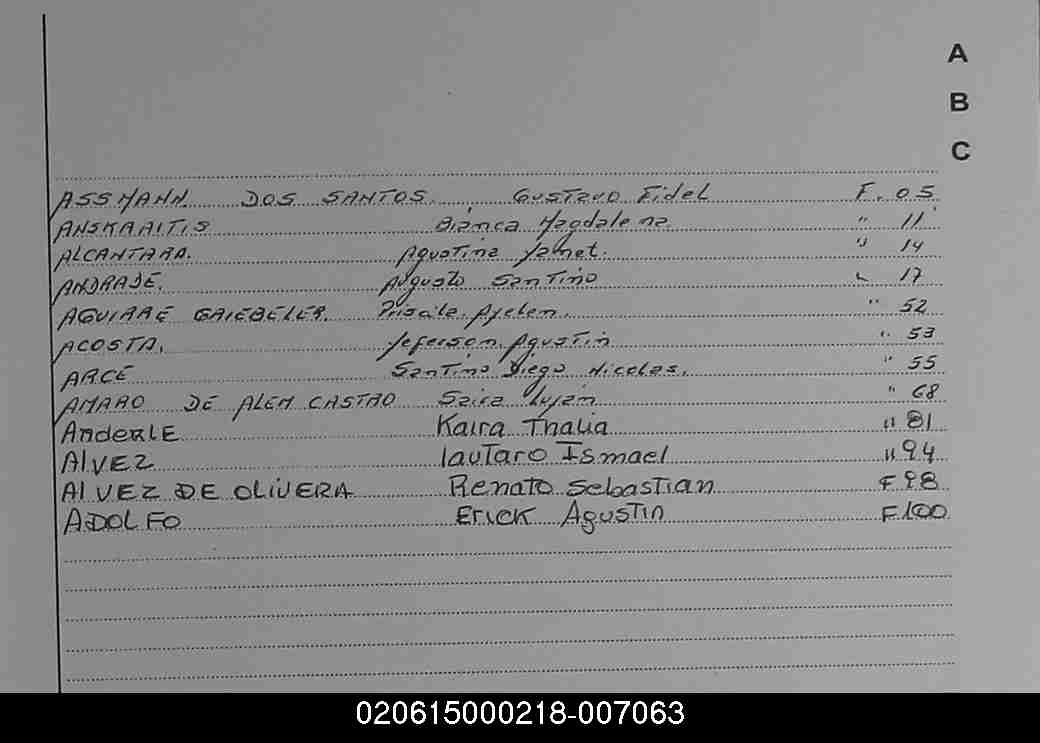 A
B
C
ASSMANN DOS SANTOS. GUSTAVO Fidel F. 05
ANSKAAITIS Bianca Magdalena. " 11
ALCANTARA. Agustina Yanet. " 14
ANDRADE. Augusto Santino " 17
AGUIRRE GRIEBELER. Priscila Ayelen. " 52
ACOSTA. Jeferson Agustin " 53
ARCE Santino Diego Nicolas. " 55
AMARO DE ALEM CASTRO Saira Lujan " 68
Anderle Kaira Thalia " 81
Alvez lautaro Ismael " 94
Alvez DE OLIVERA Renato Sebastian F 98
ADOLFO Erick Agustin F 100
020615000218-007063